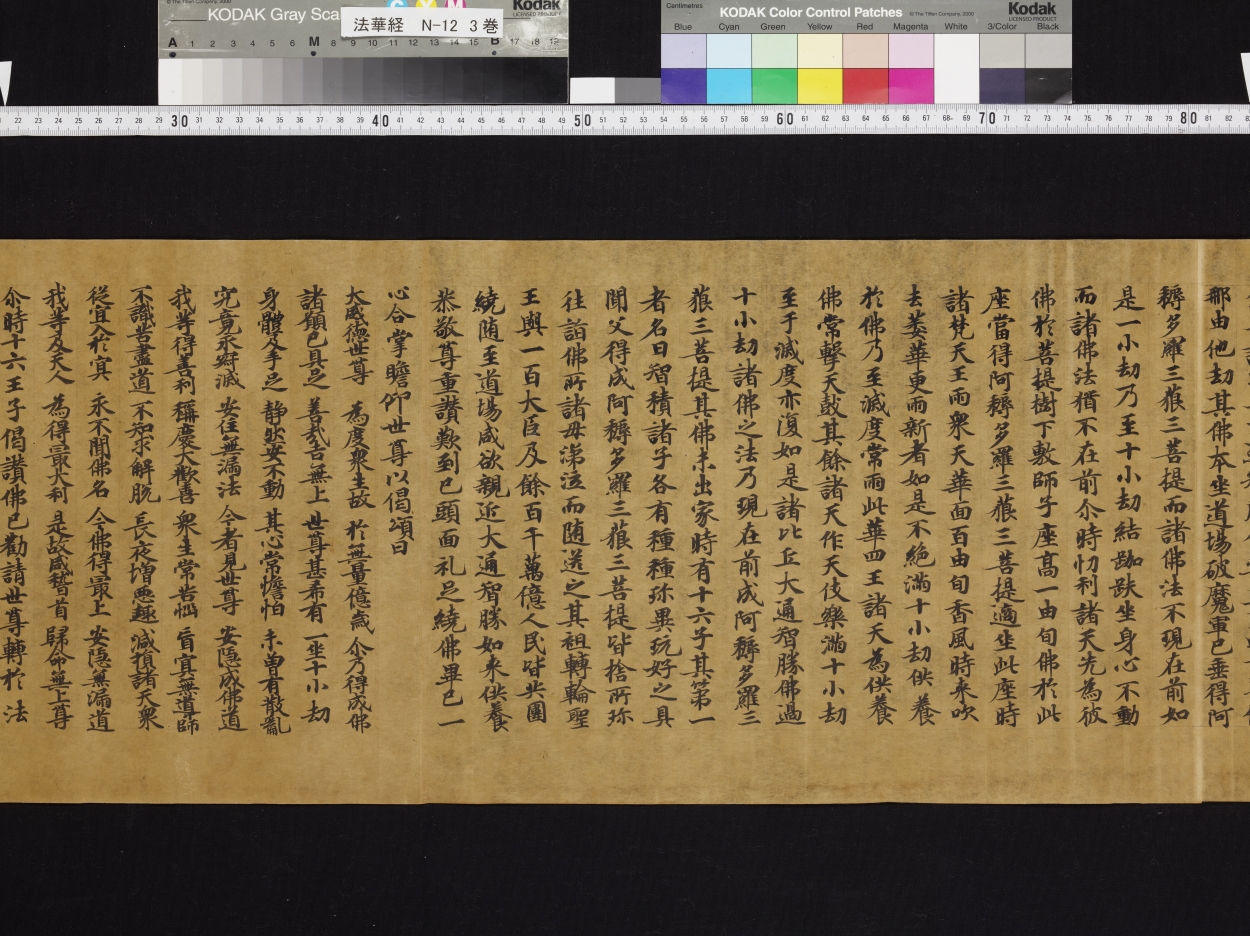 © The Tiffen Company, 2000
KODAK Gray Scale
C Y M
Kodak
LICENSED PRODUCT
法華経 N-12 3巻
A 1 2 3 4 5 6 M 8 9 10 11 12 13 14 15 B 17 18 19
Centimetres
KODAK Color Control Patches
© The Tiffen Company, 2000
Kodak
LICENSED PRODUCT
Blue Cyan Green Yellow Red Magenta White 3/Color Black
22 23 24 25 26 27 28 29 30 31 32 33 34 35 36 37 38 39 40 41 42 43 44 45 46 47 48 49 50 51 52 53 54 55 56 57 58 59 60 61 62 63 64 65 66 67 68 69 70 71 72 73 74 75 76 77 78 79 80 81 82
那由他劫其佛本坐道場破魔軍已垂得阿
耨多羅三藐三菩提而諸佛法不現在前如
是一小劫乃至十小劫結跏趺坐身心不動
而諸佛法猶不在前尒時忉利諸天先為彼
佛於菩提樹下敷師子座高一由旬佛於此
座當得阿耨多羅三藐三菩提適坐此座時
諸梵天王雨衆天華面百由旬香風時來吹
去萎華更雨新者如是不絶滿十小劫供養
於佛乃至滅度常雨此華四王諸天為供養
佛常擊天鼓其餘諸天作天伎樂滿十小劫
至于滅度亦復如是諸比丘大通智勝佛過
十小劫諸佛之法乃現在前成阿耨多羅三
藐三菩提其佛未出家時有十六子其第一
者名曰智積諸子各有種種珎異玩好之具
聞父得成阿耨多羅三藐三菩提皆捨所珎
往詣佛所諸母涕泣而随送之其祖轉輪聖
王與一百大臣及餘百千萬億人民皆共圍
繞随至道場咸欲親近大通智勝如来供養
恭敬尊重讚歎到已頭面礼足繞佛畢已一
心合掌瞻仰世尊以偈頌曰
大威德世尊 為度衆生故 於無量億歳 尒乃得成佛
諸願已具足 善哉吉無上 世尊甚希有 一坐十小劫
身體及手足 静然安不動 其心常憺怕 未曽有散亂
究竟永寂滅 安住無漏法 今者見世尊 安隠成佛道
我等得善利 稱慶大歡喜 衆生常苦惱 盲冥無導師
不識苦盡道 不知求解脱 長夜増悪趣 減損諸天衆
從冥入於冥 永不聞佛名 今佛得最上 安隠無漏道
我等及天人 為得最大利 是故咸稽首 歸命無上尊
尒時十六王子偈讚佛已勸請世尊轉於法